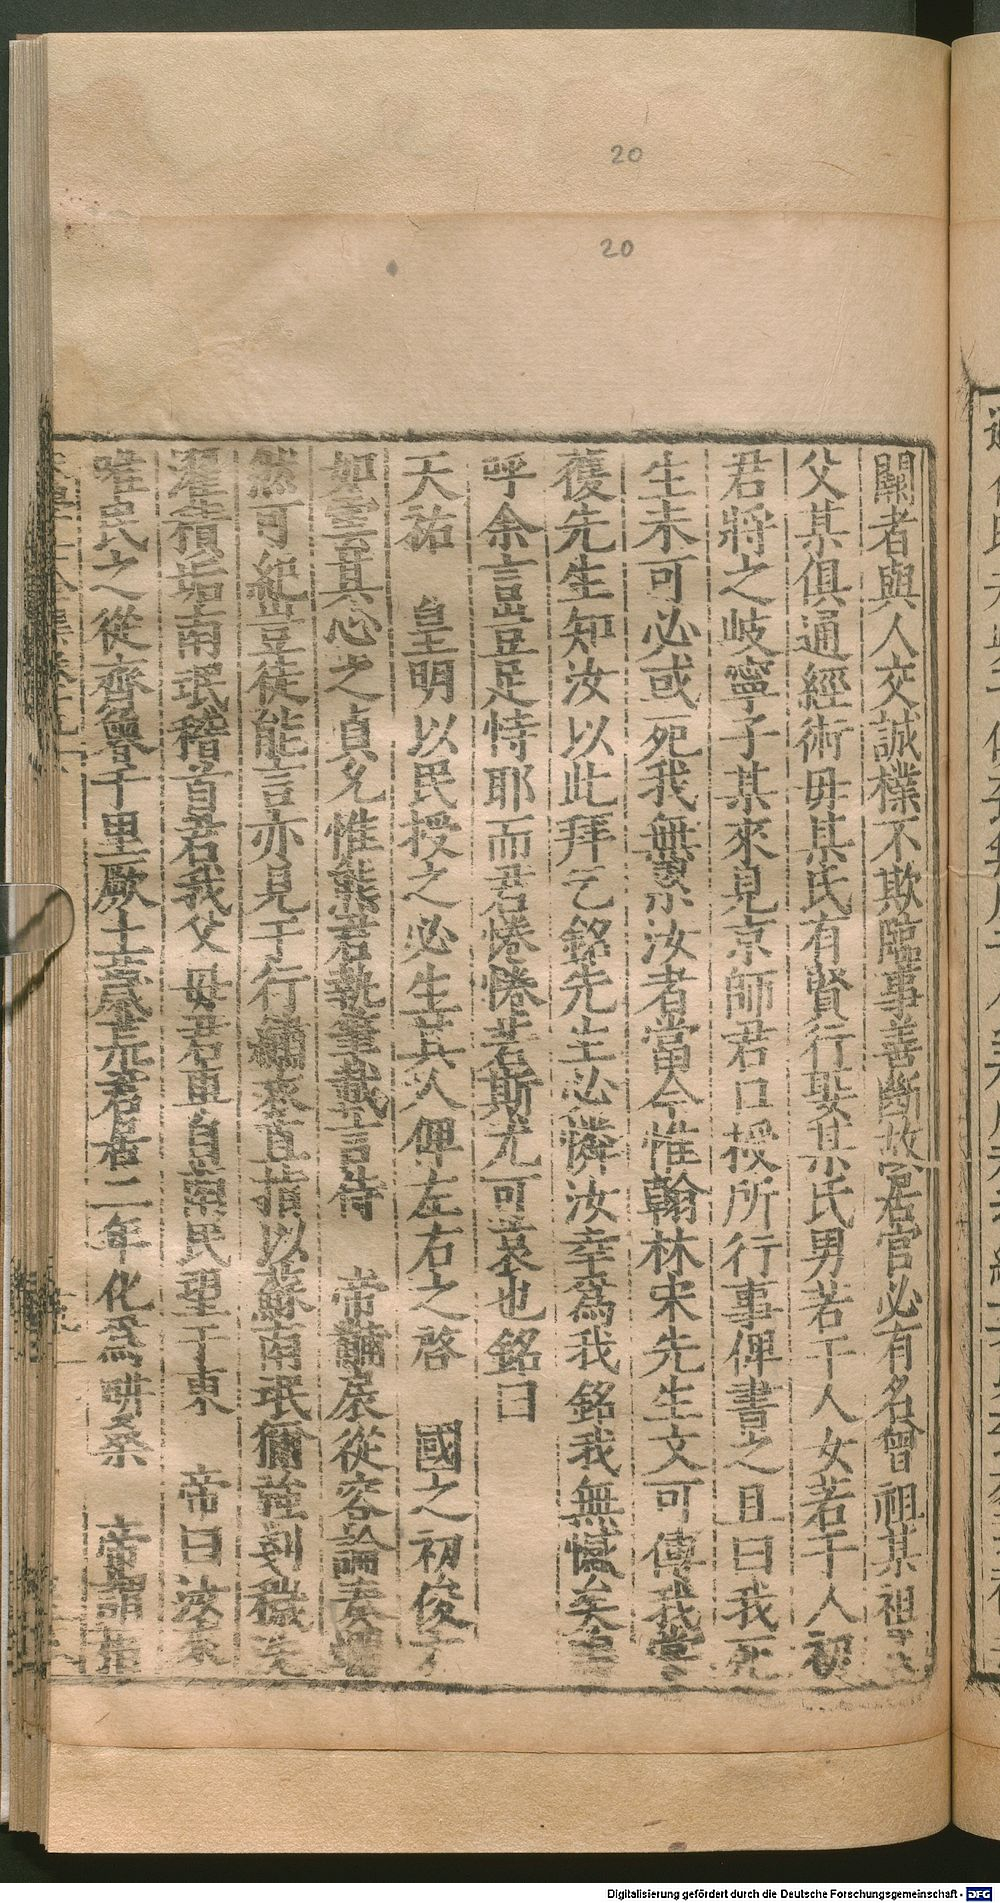 20
20
關者與人交誠樸不欺臨事善斷故居官必有名曾祖某祖某
父某俱通經術毋某氏有賢行娶某氏男若干人女若干人初
君將之岐寧子某來見京師君口授所行事俾書之且曰我死
生未可必或死我無累汝者當今惟翰林宋先生文可傳我嘗
獲先生知汝以此拜乞銘先生必憐汝幸為我銘我無憾矣嗚
呼余言豈足恃耶而君惓惓若斯尤可哀也銘曰
天祐 皇明以民授之必生其人俾左右之啓 國之初俊
如雲其心之貞允惟熊君執筆載言侍 帝黼扆從容論奏
然可紀豈徒能言亦見于行繡衣直指以蘇南氓獮強刮穢
濯積垢南氓稽首君我父毋君車自南民望于東 帝曰汝來
唯民之從齊魯千里厥土荒君居二年化為耕桑 帝謂
Digitalisierung gefördert durch die Deutsche Forschungsgemeinschaft - DFG